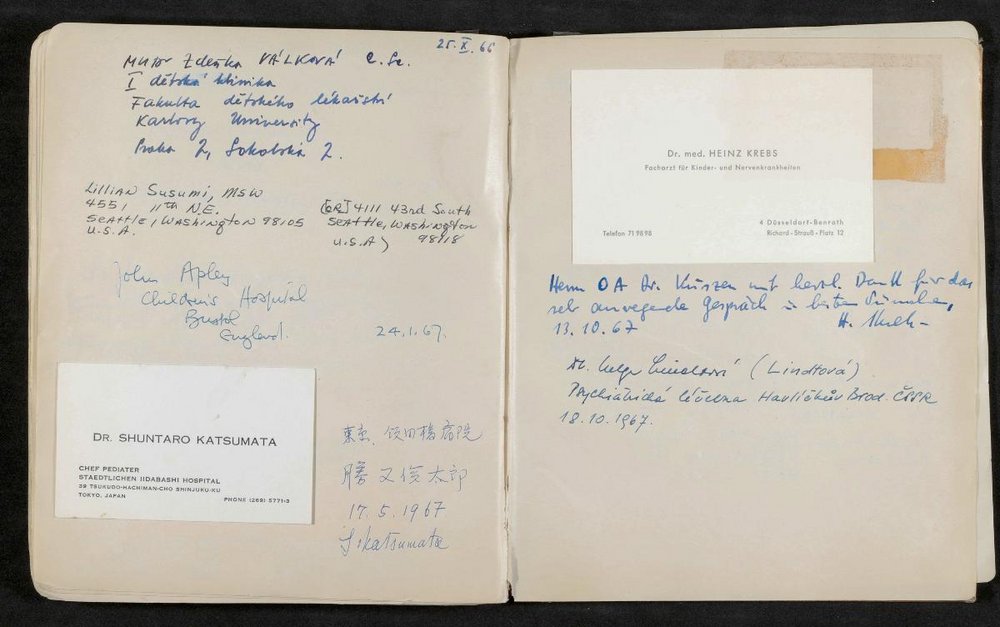 25. X. 66
MUDr Zdeňka VÁLKOVÁ C.Sc.
I dětská klinika
Fakulta dětského lékařství
Karlovy University
Praha 2, Sokolská 2.
Lillian Susumi, MSW
4551 11th N.E.
Seattle, Washington 98105
U.S.A.
[OR] 4111 43rd South
Seattle, Washington
U.S.A) 98118
John Apley
Children's Hospital
Bristol
England.
24.1.67.
DR. SHUNTARO KATSUMATA
CHEF PEDIATER
STAEDTLICHEN IIDABASHI HOSPITAL
39 TSUKUDO-HACHIMAN-CHO SHINJUKU-KU
TOKYO, JAPAN
PHONE (269) 5771-3
東京 飯田橋病院
勝又俊太郎
17. 5. 1967
S. Katsumata
Dr. med. HEINZ KREBS
Facharzt für Kinder- und Nervenkrankheiten
Telefon 71 98 98
4 Düsseldorf-Benrath
Richard-Strauß-Platz 12
Herrn OA Dr. mit herzl. Dank für das
sehr anregende Gespräch u. besten
13.10.67
H.
Dr. Helga (Lindtová)
Psychiatrická léčebna Havlíčkův Brod ČSSR
18.10.1967.